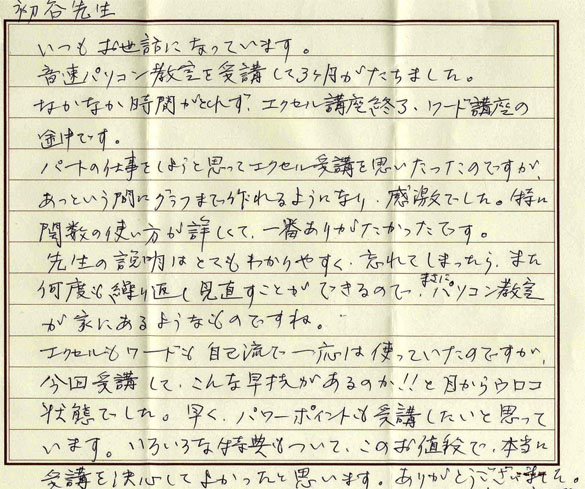 初谷先生
いつもお世話になっています。
音速パソコン教室を受講して3ヶ月がたちました。
なかなか時間がとれず、エクセル講座終了、ワード講座の
途中です。
パートの仕事をしようと思ってエクセル受講を思いたったのですが、
あっという間にグラフまで作れるようになり、感激でした。特に
関数の使い方が詳しくて、一番ありがたかったです。
先生の説明はとてもわかりやすく、忘れてしまったら、また
何度も繰り返し見直すことができるので、まさに。パソコン教室
が家にあるようなものですね。
エクセルもワードも自己流で一応は使っていたのですが、
今回受講して、こんな早技があるのか!!と目からウロコ
状態でした。早く、パワーポイントも受講したいと思って
います。いろいろな特典もついて、このお値段で、本当に
受講を決心してよかったと思います。ありがとうございました。